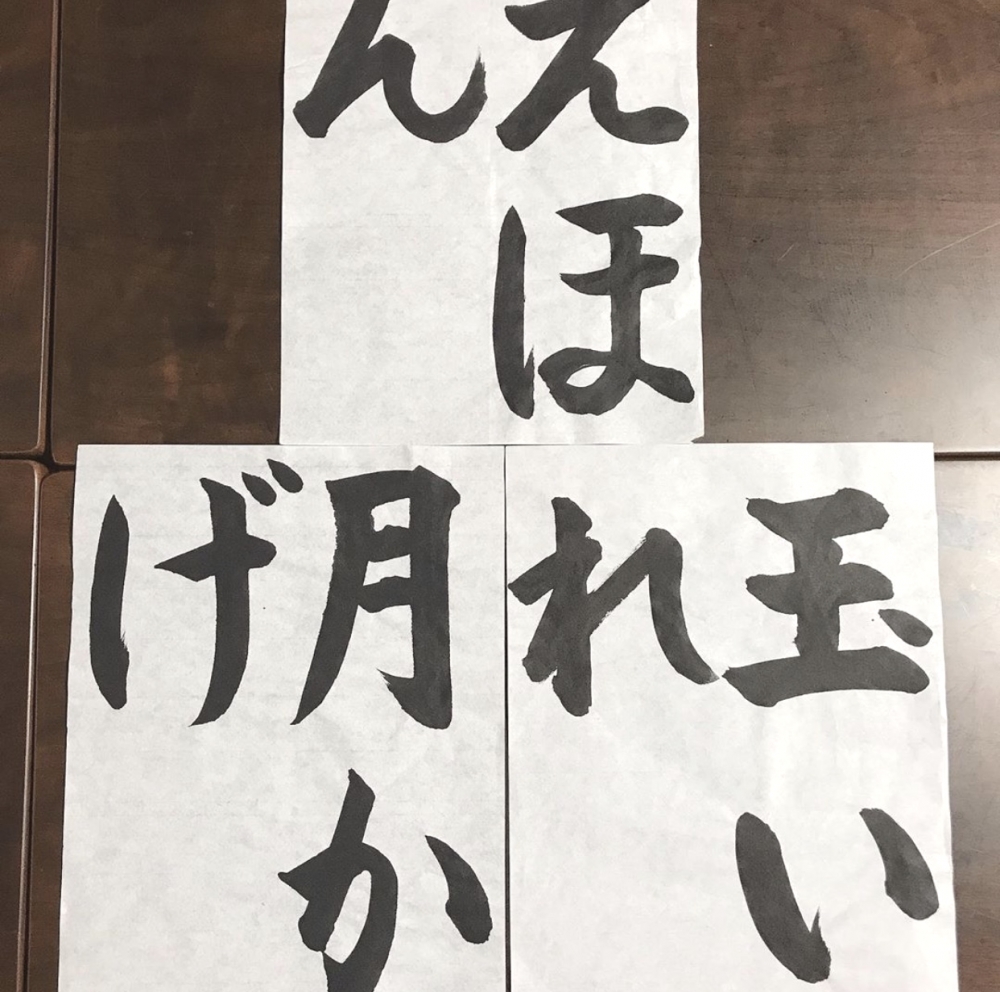 えほ
ん
玉い
れ
月か
げ